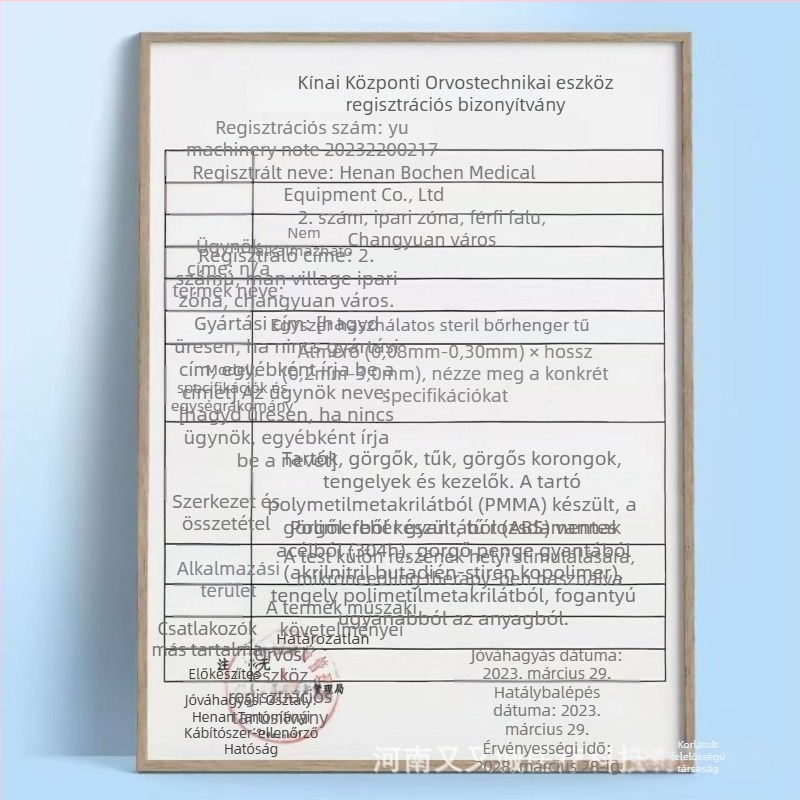 Kínai Központi Orvostechnikai eszköz
regisztrációs bizonyítvány
Regisztrációs szám: yu
machinery note 20232200217
Regisztrált neve: Henan Bochen Medical
Equipment Co., Ltd
2. szám, ipari zóna, férfi falu,
Changyuan város
Nem
alkalmazható
Ügynök
címe: n/a
Regisztráló címe: 2.
számú, man village ipari
zóna, changyuan város.
termék neve:
Egyszer használatos steril bőrhenger tű
Gyártási cím: [hagyd
üresen, ha nincs gyártási
cím, egyébként írja be a
címet] Az ügynök neve:
[hagyd üresen, ha nincs
ügynök, egyébként írja
be a nevét].
Átmérő (0,08mm-0,30mm) × hossz
(0,2mm-3,0mm), nézze meg a konkrét
specifikációkat
Modell,
specifikációk és
egységrakomány
Szerkezet és
összetétel
Tartók, görgők, tűk, görgős korongok,
tengelyek és kezelők. A tartó
polymetilmetakrilátból (PMMA) készült, a
görgők fehér gyantából (ABS) vannak
acélból (304h), görgő penge gyantából
(akrilnitril butadién-stirén kopolimer),
tengely polimetilmetakrilátból, fogantyú
ugyanabból az anyagból.
Alkalmazási
terület
A test külön részének helyi stimulálására,
microneedling therapy-ben használva
A termék műszaki
követelményei
Csatlakozók
más tartalma
Határozatlan
注
无
Előkészítés
orvosi
eszköz
regisztrációs
tanúsítvány
管理局
Jóváhagyási Osztály:
Henan Tartományi
Kábítószer-ellenőrző
Hatóság
Jóváhagyás dátuma:
2023. március 29.
Hatálybalépés
dátuma: 2023.
március 29.
Érvényességi idő:
2028. március 28-ig
河南又又
Korlátolt
felelősségű
társaság